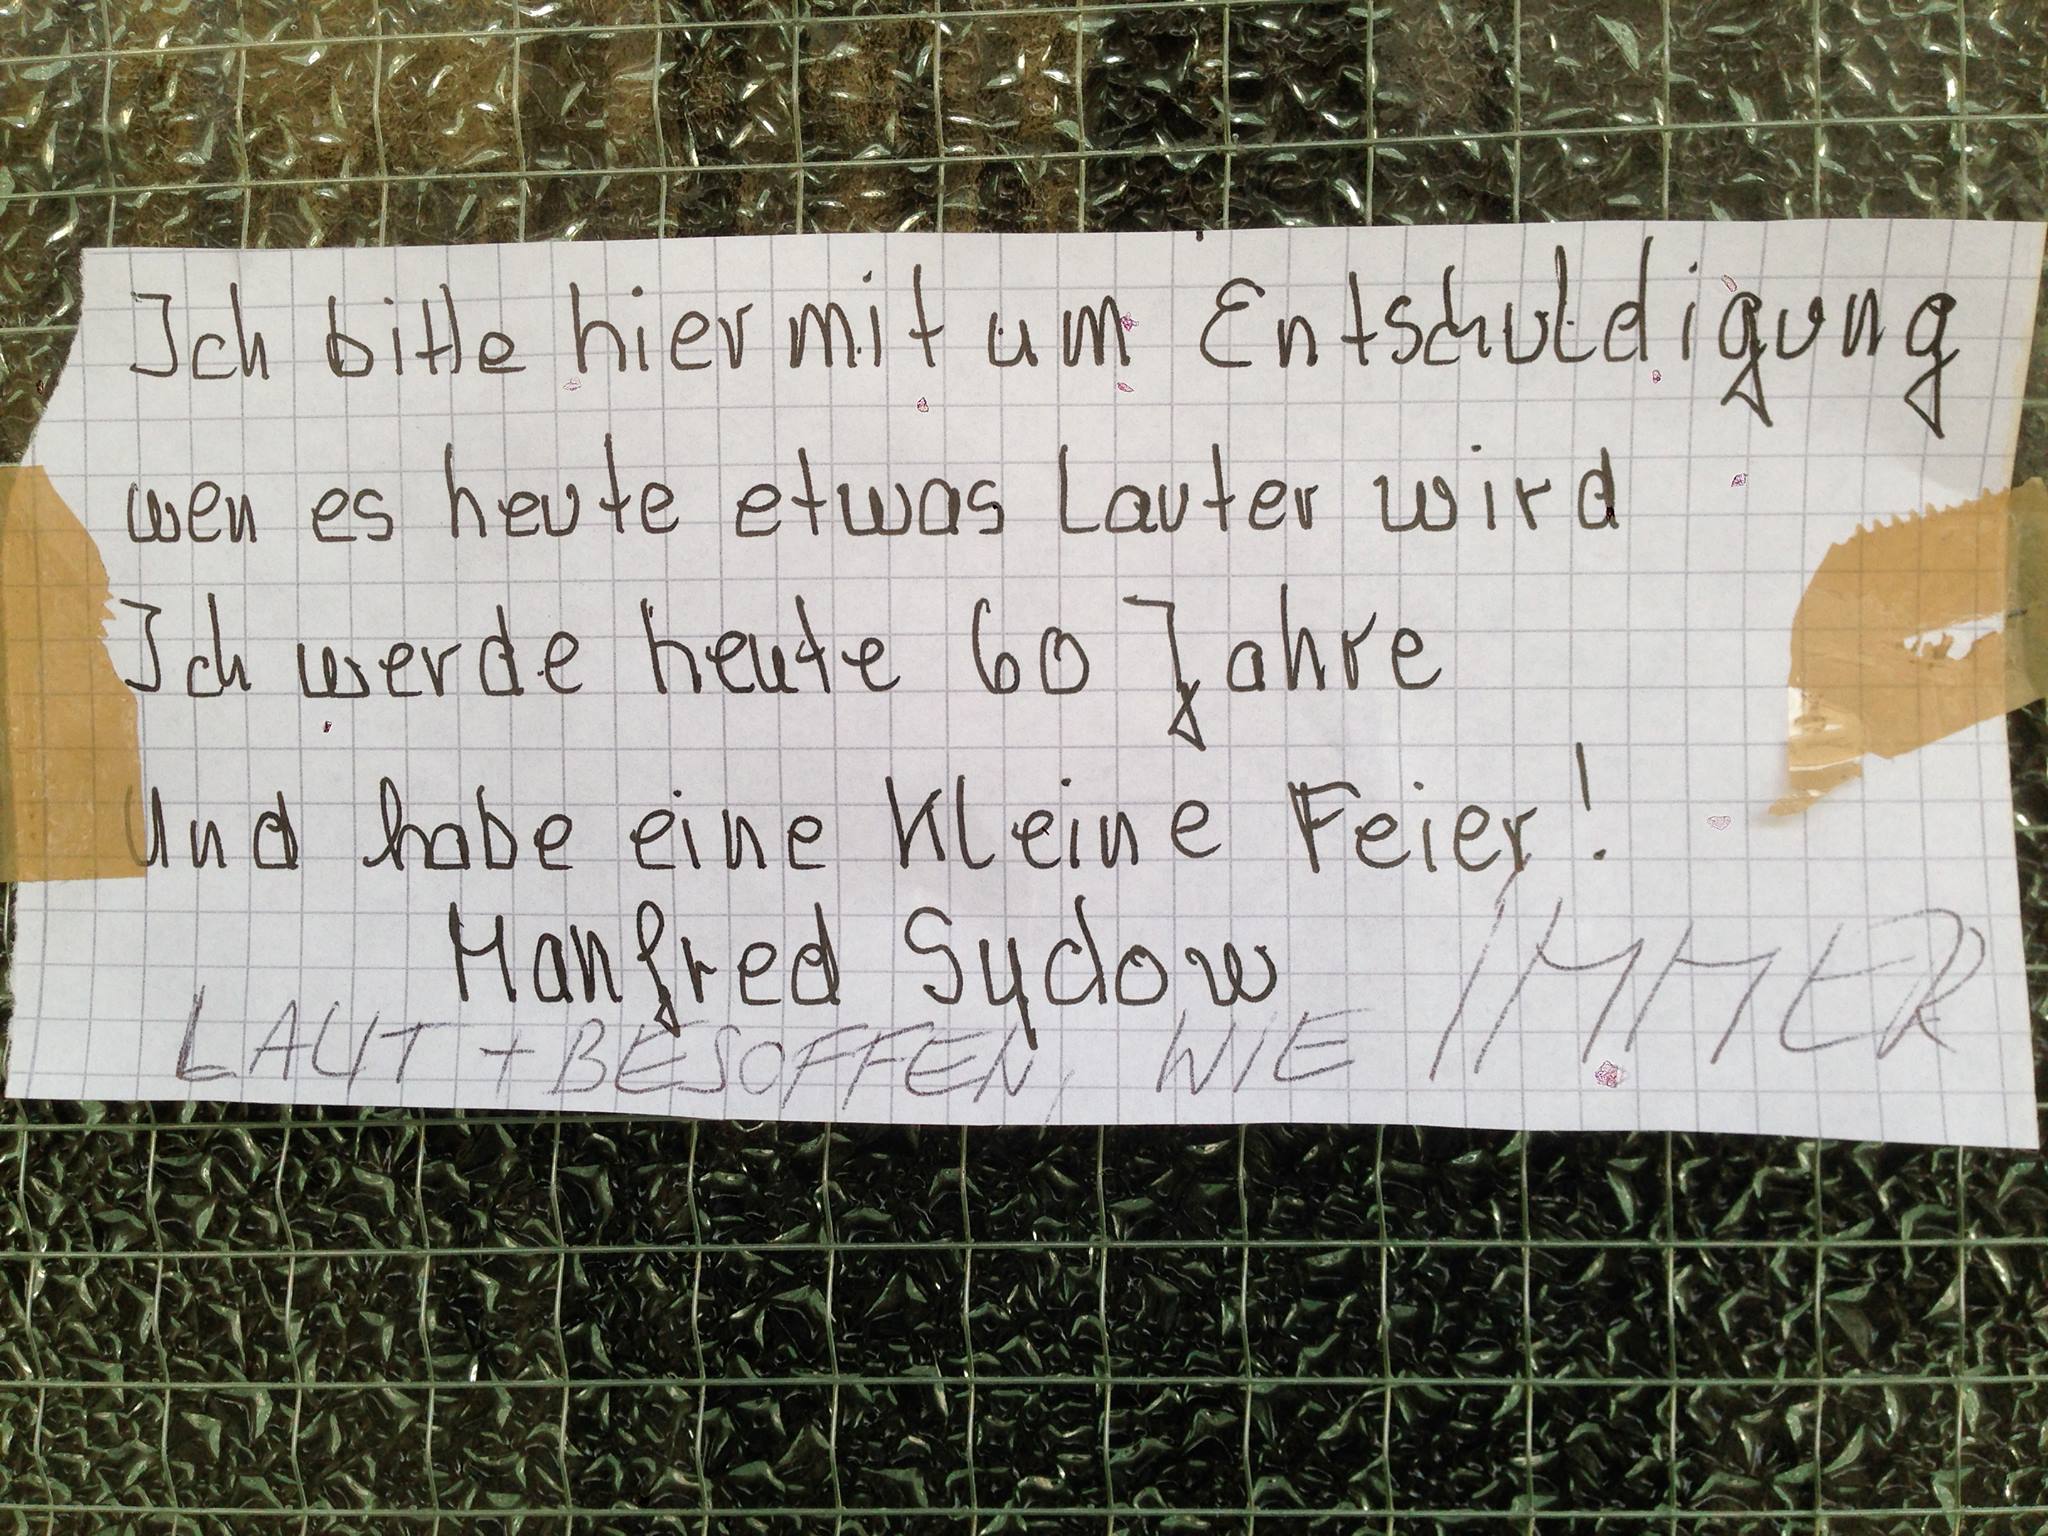 Ich bitte hiermit um Entschuldigung
wen es heute etwas Lauter wird
Ich werde heute 60 Jahre
Und habe eine Kleine Feier!
Manfred Sydow
LAUT + BESOFFEN, WIE IMMER